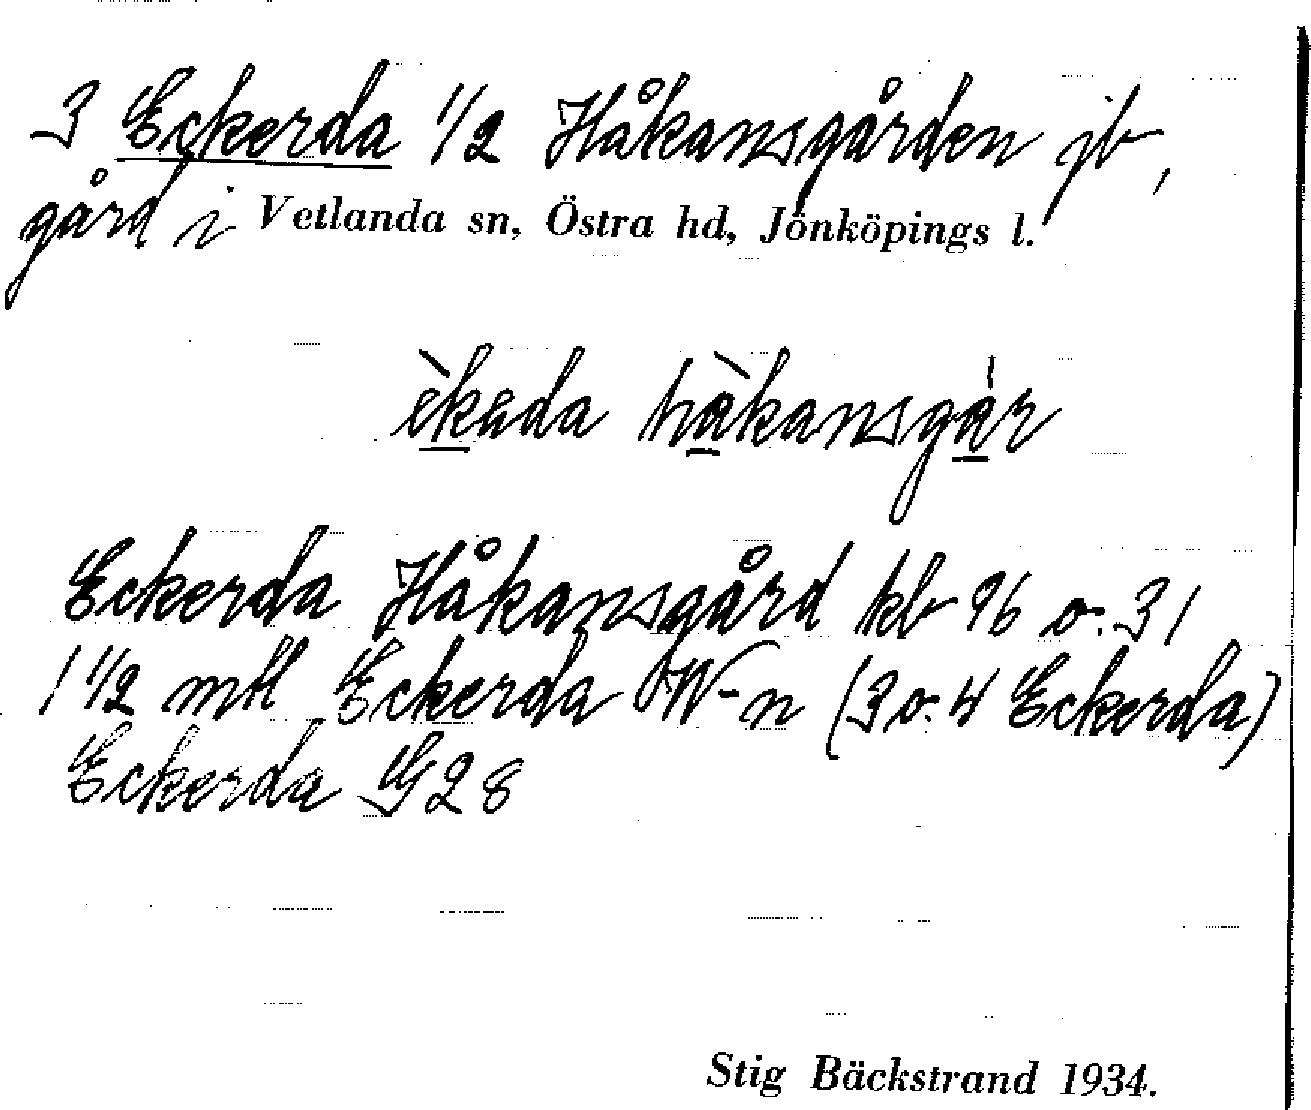 3 Eckerda 1/2 Håkansgården jb,
gård i Vetlanda sn, Östra hd, Jönköpings l.
èkada hàkansgár
Eckerda Håkansgård kb 96 o. 31
1 1/2 mtl Eckerda W-n (3 o. 4 Eckerda)
Eckerda G 28
Stig Bäckstrand 1934.